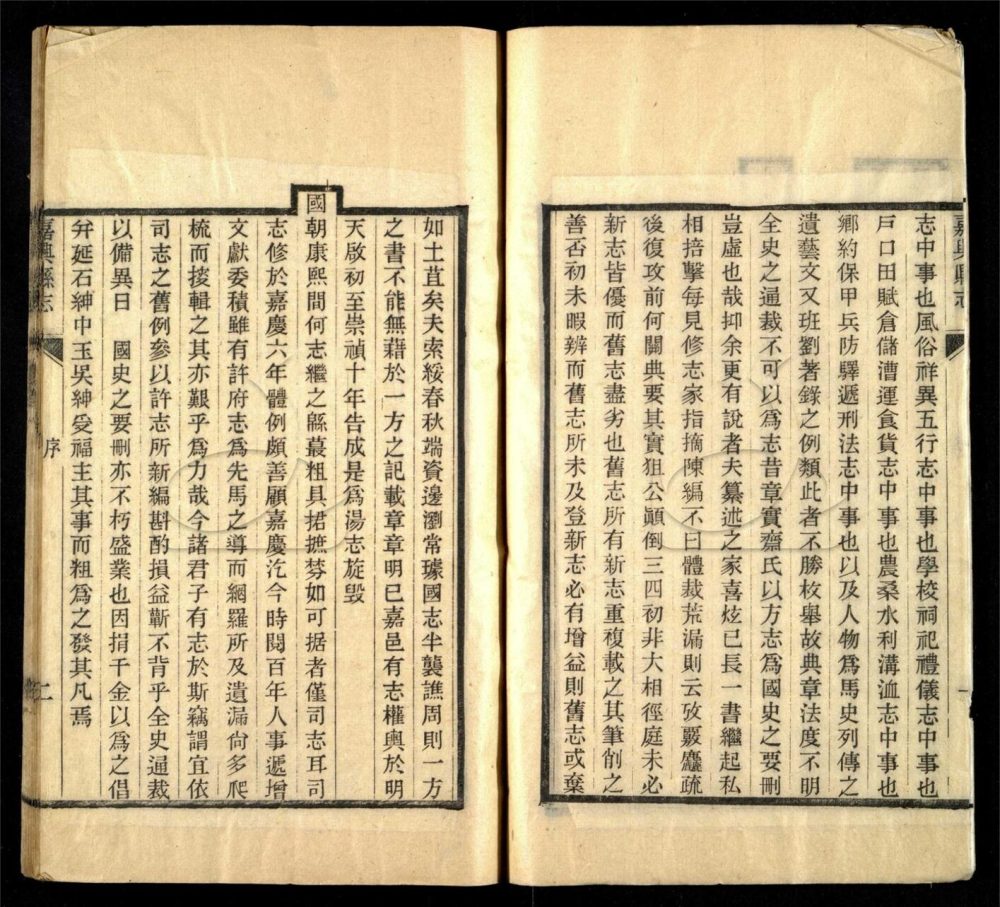 嘉興縣志
志中事也風俗祥異五行志中事也學校祠祀禮儀志中事也
戸口田賦倉儲漕運食貨志中事也農桑水利溝洫志中事也
鄉約保甲兵防驛遞刑法志中事也以及人物為馬史列傳之
遺藝文又班劉著錄之例類此者不勝枚舉故典章法度不明
全史之通裁不可以為志昔章實齋氏以方志為國史之要刪
豈虛也哉抑余更有說者夫纂述之家喜炫已長一書繼起私
相掊擊每見修志家指摘陳編不曰體裁荒漏則云攷覈麤疏
後復攻前何關典要其實狙公顚倒三四初非大相徑庭未必
新志皆優而舊志盡劣也舊志所有新志重複載之其筆削之
善否初未暇辨而舊志所未及登新志必有增益則舊志或棄
如土苴矣夫索綏春秋端資邊瀏常璩國志半襲譙周則一方
之書不能無藉於一方之記載章章明已嘉邑有志權輿於明
天啟初至崇禎十年告成是爲湯志旋毀
國朝康熙間何志繼之緜蕞粗具捃摭棼如可据者僅司志耳司
志修於嘉慶六年體例頗善顧嘉慶汔今時閱百年人事遞增
文獻委積雖有許府志爲先馬之導而網羅所及遺漏尙多爬
梳而掞輯之其亦艱乎爲力哉今諸君子有志於斯竊謂宜依
司志之舊例參以許志所新編斟酌損益蘄不背乎全史通裁
以備異日　國史之要刪亦不朽盛業也因捐千金以爲之倡
弁延石紳中玉吳紳受福主其事而粗爲之發其凡焉
嘉興縣志
序
二